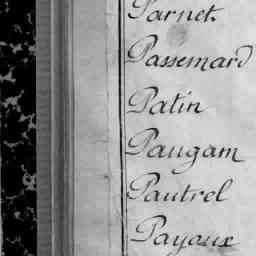 Parnet.
Passemard
Patin
Paugam
Pautrel
Payaux